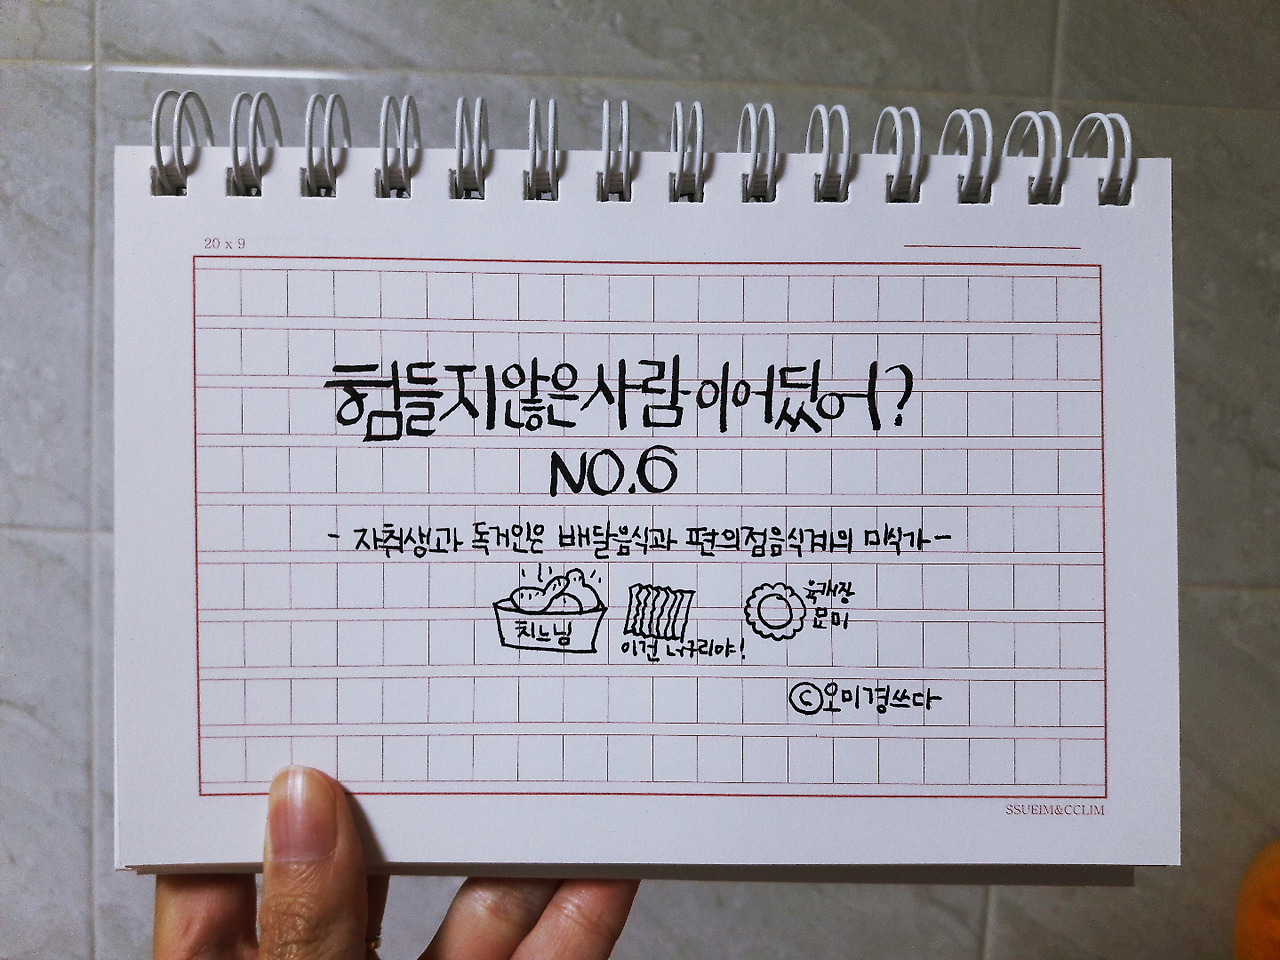 20 x 9
힘들지않은사람이어딨어?
NO.6
- 자취생과 독거인은 배달음식과 편의점음식계의 미식가 -
치느님
이건 너구리야!
육개장
문미
©오미경쓰다
SSUEIM&CCLIM